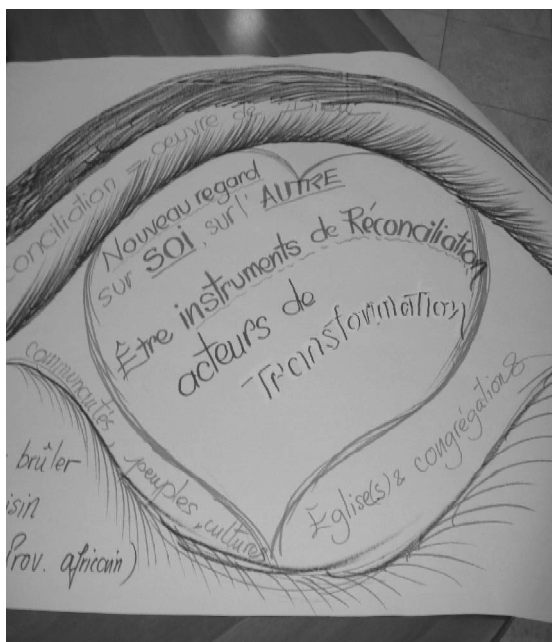 conciliation = œuvre de Dieu
Nouveau regard
sur SOI, sur l'AUTRE
Être instruments de Réconciliation
acteurs de
Transformation
communautés, peuples, cultures
Église(s) & congrégations
brûler
isin
Prov. africain)